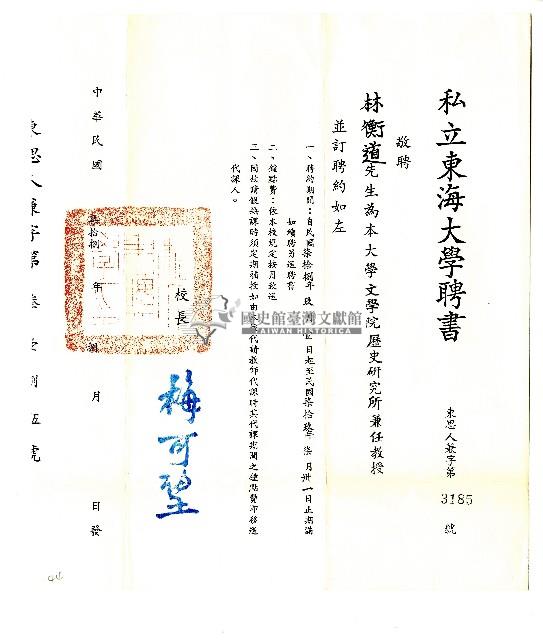 私立東海大學聘書
東思人兼字第 3185 號
敬聘
林衡道先生為本大學文學院歷史研究所兼任教授
並訂聘約如左
一、聘約期間：自民國柒拾捌年 月 日起至民國柒拾玖年柒月卅一日止期滿
如續聘另送聘書
二、鐘點費：依本校規定按月致送
三、因故請假缺課時須定期補授如由本校代請教師代課時其代課期間之鐘點費即移送
代課人。
校長
梅可望
中華民國 柒拾捌 年 月 日發
東思人兼字第 號
國史館臺灣文獻館
TAIWAN HISTORICA